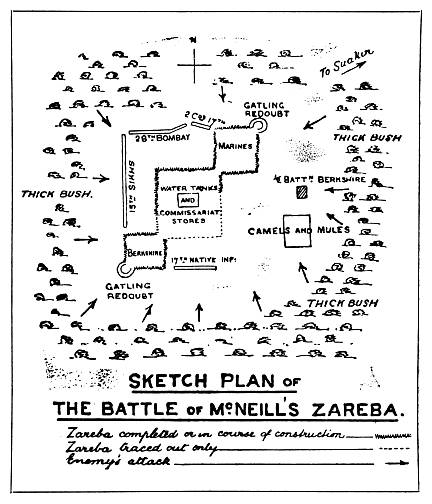 N
To Suakin
GATLING
REDOUBT
2 Coys 17TH
28TH BOMBAY
MARINES
THICK BUSH
15TH SIKHS
½ BATTN BERKSHIRE
THICK BUSH.
WATER TANKS
AND
COMMISSARIAT
STORES
CAMELS AND MULES
BERKSHIRE
17TH NATIVE INF:
GATLING
REDOUBT
THICK BUSH
SKETCH PLAN OF
THE BATTLE OF McNEILL'S ZAREBA.
Zareba completed or in course of construction
Zareba traced out only
Enemy's attack